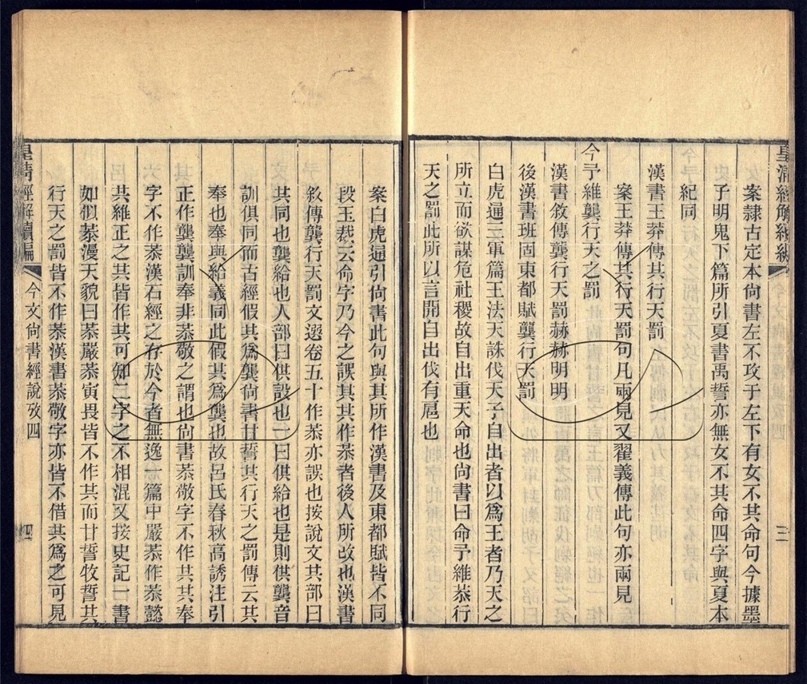 皇清經解續編
三
案隸古定本尙書左不攻于左下有女不其命句今據墨
子明鬼下篇所引夏書禹誓亦無女不其命四字與夏本
紀同
漢書王莽傳其行天罰
案王莽傳其行天罰句凡兩見又翟義傳此句亦兩見
今予維龔行天之罰
漢書敘傳龔行天罰赫赫明明
後漢書班固東都賦龔行天罰
白虎通三軍篇王法天誅伐天子自出者以爲王者乃天之
所立而欲謀危社稷故自出重天命也尙書曰命予維恭行
天之罰此所以言開自出伐有扈也
案白虎通引尙書此句與其所作漢書及東都賦皆不同
段玉裁云命字乃今之誤其其作恭者後人所改也漢書
敘傳龔行天罰文選卷五十作恭亦誤也按說文其部曰
其同也龔給也人部曰供設也一曰供給也是則供龔音
訓俱同而古經假其爲龔尙書甘誓其行天之罰傳云其
奉也奉與給義同此假其爲龔也故呂氏春秋高誘注引
正作龔龔訓奉非恭敬之謂也尙書恭敬字不作其其奉
字不作恭漢石經之存於今者無逸一篇中嚴恭作恭懿
共維正之其皆作其可知二字之不相混又按史記一書
如似恭漫天貌曰恭嚴恭寅畏皆不作其而甘誓牧誓其
行天之罰皆不作恭漢書恭敬字亦皆不借其爲之可見
皇清經解續編
今文尙書經說攷四
四